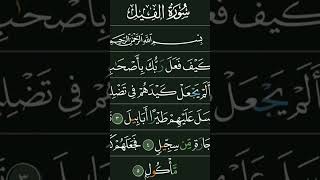 سُورَةُ الفِيلِ
بِسْمِ اللَّهِ الرَّحْمَٰنِ الرَّحِيمِ
كَيْفَ فَعَلَ رَبُّكَ بِأَصْحَٰبِ
أَلَمْ يَجْعَلْ كَيْدَهُمْ فِى تَضْلِ
سَلَ عَلَيْهِمْ طَيْرًا أَبَابِيلَ ٣
جَارَةٍ مِّن سِجِّيلٍ ٤ فَجَعَلَهُمْ كَ
مَّأْكُولٍ ٥